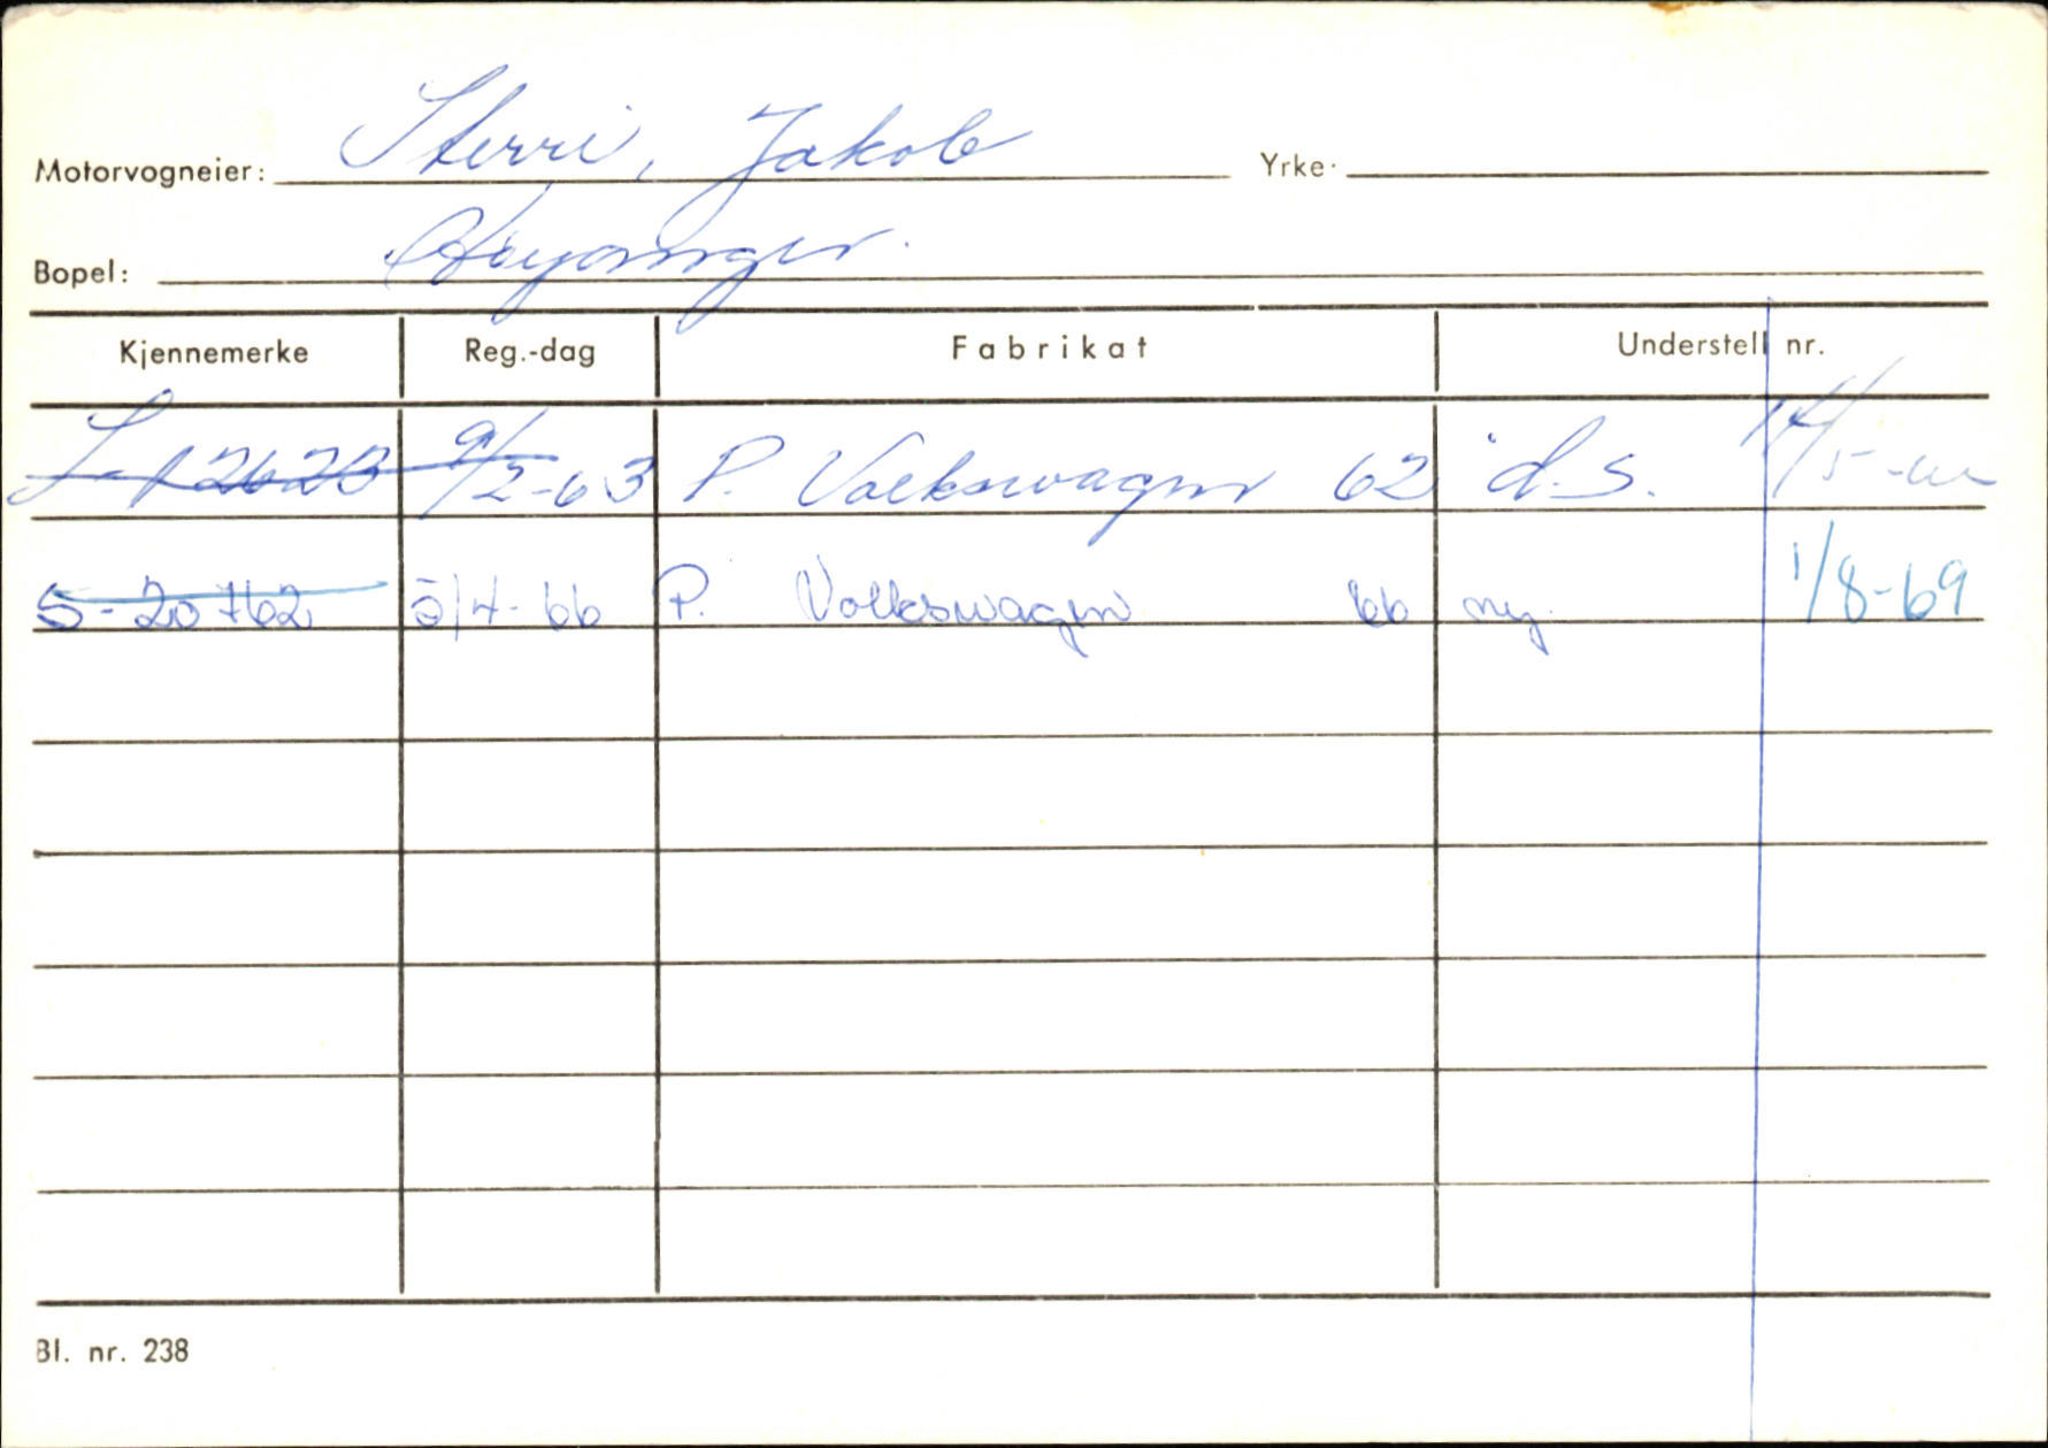 Motorvogneier: Sterri, Jakob Yrke:
Bopel: Høyanger.
Kjennemerke Reg.-dag Fabrikat Understell nr.
S-12623 9/2-63 P. Volkswagen 62 d.S. 14/5-
S-20762 5/4-66 P. Volkswagen 66 ny. 1/8-69
Bl. nr. 238